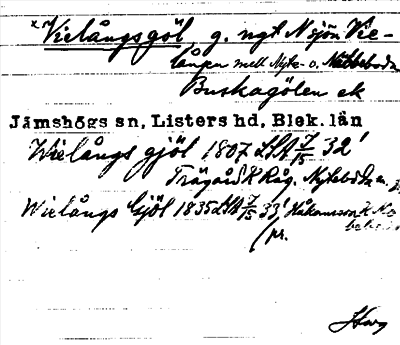 x Vielångsgöl, g. ngt N sjön Vie-
långan mell Nyte- o. Nätteboda
Buskagölen ek
Jämshögs sn, Listers hd, Blek. län
Wielångs gjöl 1807 LSA 7/15 32'
Trägård K Råg. Nyteboda
Wielångs Gjöl 1835 LSA 7/15 33' Håkansson K
(pr.